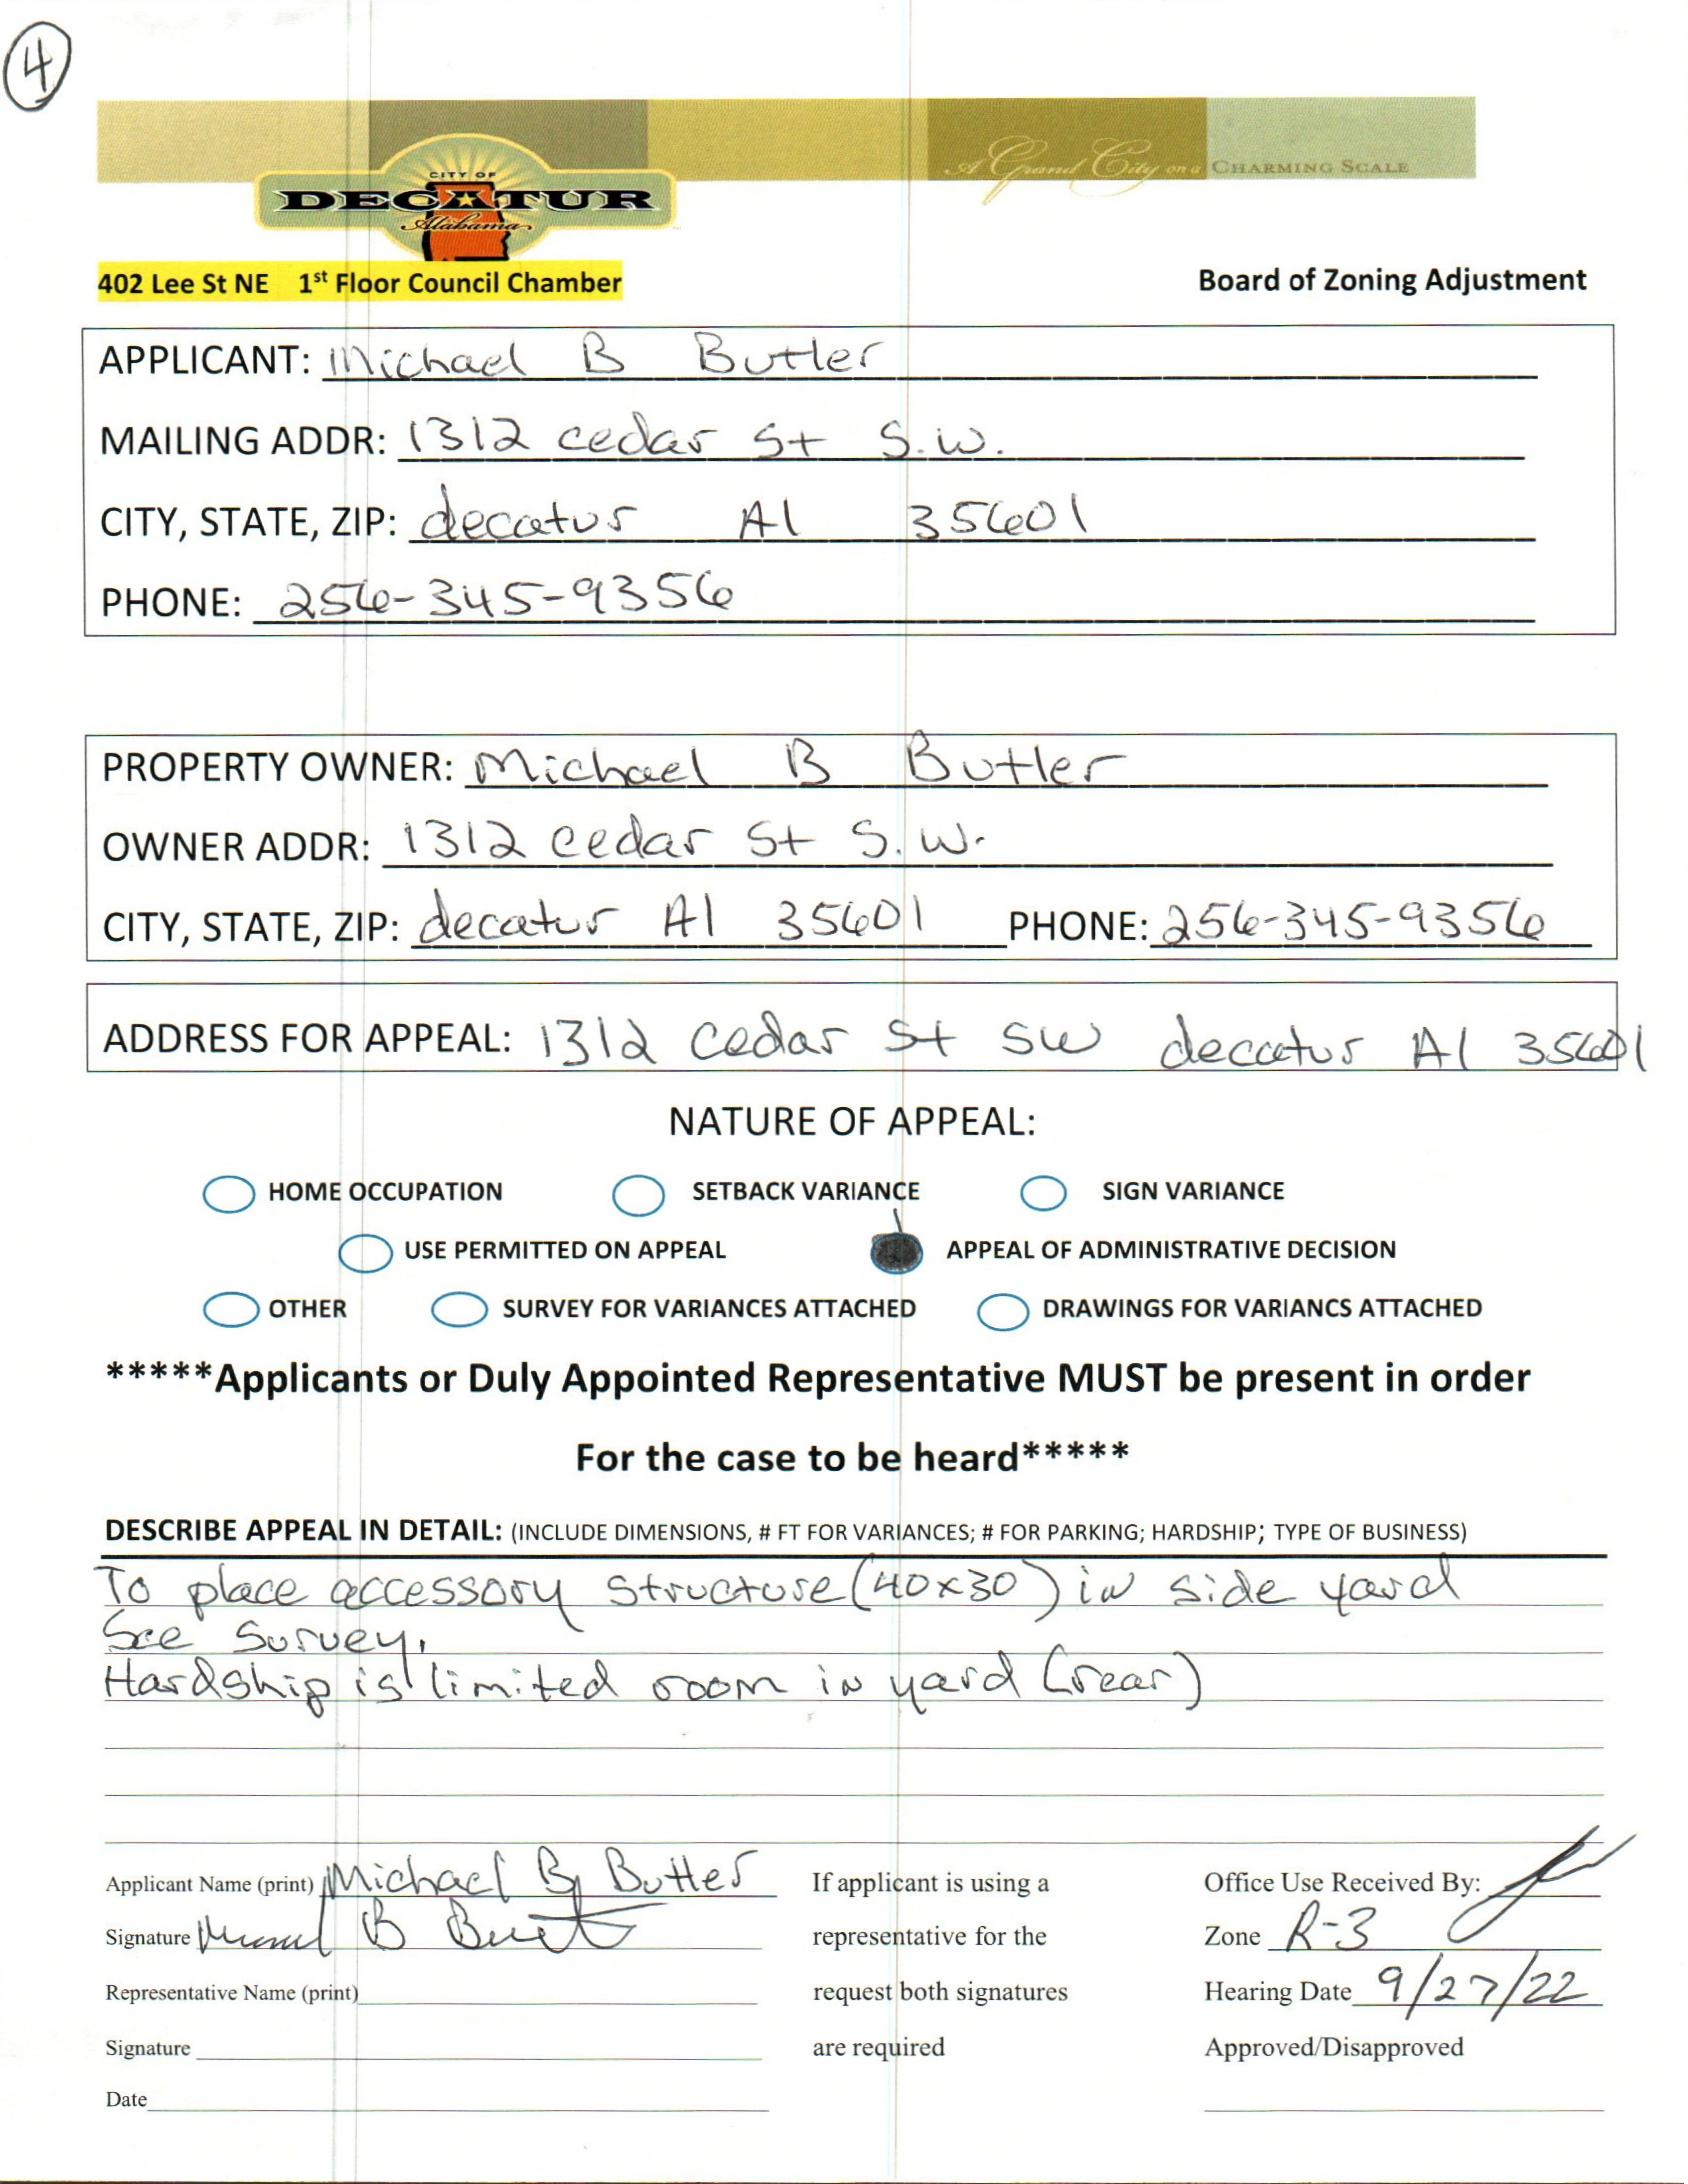 4
A Grand City on a CHARMING SCALE
CITY OF
DECATUR
Alabama
402 Lee St NE 1st Floor Council Chamber
Board of Zoning Adjustment
APPLICANT: Michael B Butler
MAILING ADDR: 1312 cedar St S.W.
CITY, STATE, ZIP: decatur Al 35601
PHONE: 256-345-9356
PROPERTY OWNER: Michael B Butler
OWNER ADDR: 1312 cedar St S.W.
CITY, STATE, ZIP: decatur Al 35601 PHONE: 256-345-9356
ADDRESS FOR APPEAL: 1312 cedar St SW decatur Al 35601
NATURE OF APPEAL:
HOME OCCUPATION SETBACK VARIANCE SIGN VARIANCE
USE PERMITTED ON APPEAL APPEAL OF ADMINISTRATIVE DECISION
OTHER SURVEY FOR VARIANCES ATTACHED DRAWINGS FOR VARIANCS ATTACHED
*****Applicants or Duly Appointed Representative MUST be present in order
For the case to be heard*****
DESCRIBE APPEAL IN DETAIL: (INCLUDE DIMENSIONS, # FT FOR VARIANCES; # FOR PARKING; HARDSHIP; TYPE OF BUSINESS)
To place accessory structure (40x30) in side yard
See Survey.
Hardship is limited room in yard (rear)
Applicant Name (print) Michael B Butler
Signature Michael B Butler
Representative Name (print)
Signature
Date
If applicant is using a
representative for the
request both signatures
are required
Office Use Received By:
Zone R-3
Hearing Date 9/27/22
Approved/Disapproved